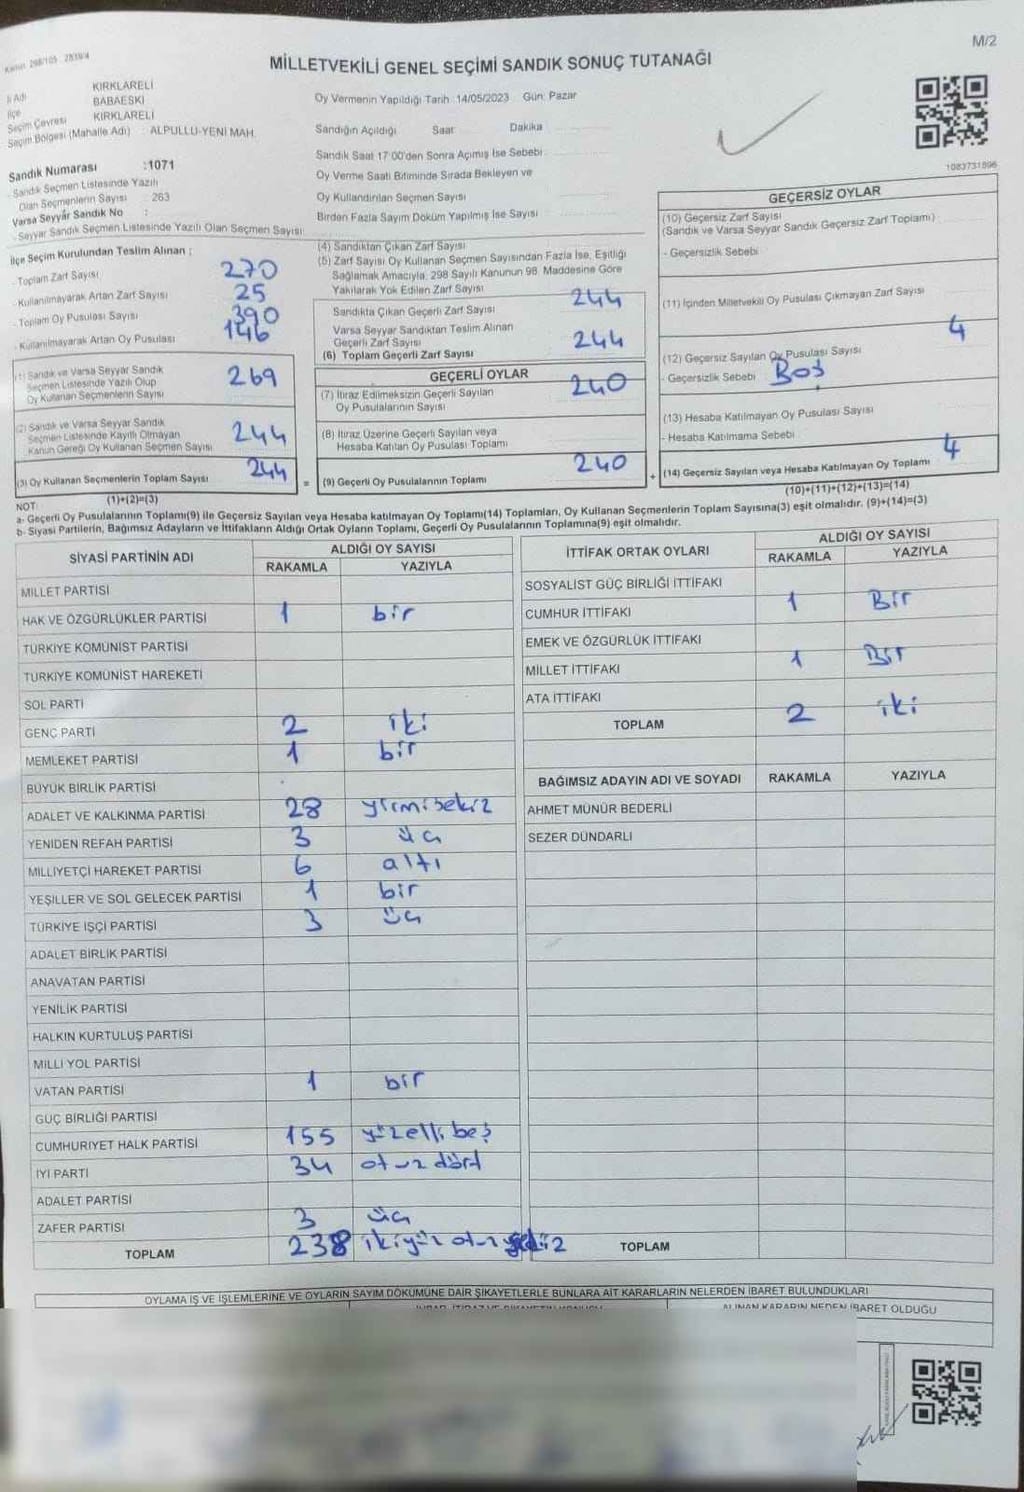 M/2
Kanun: 298/105 2839/4
MİLLETVEKİLİ GENEL SEÇİMİ SANDIK SONUÇ TUTANAĞI
İl Adı KIRKLARELİ
İlçe BABAESKİ
Seçim Çevresi KIRKLARELİ
Seçim Bölgesi (Mahalle Adı) : ALPULLU-YENİ MAH.
Sandık Numarası :1071
- Sandık Seçmen Listesinde Yazılı
Olan Seçmenlerin Sayısı : 263
Varsa Seyyar Sandık No :
- Seyyar Sandık Seçmen Listesinde Yazılı Olan Seçmen Sayısı:
Oy Vermenin Yapıldığı Tarih :14/05/2023 Gün: Pazar
Sandığın Açıldığı Saat Dakika
Sandık Saat 17:00'den Sonra Açımış İse Sebebi
Oy Verme Saati Bitiminde Sırada Bekleyen ve
Oy Kullandırılan Seçmen Sayısı
Birden Fazla Sayım Döküm Yapılmış İse Sayısı
1083731896
İlçe Seçim Kurulundan Teslim Alınan ;
- Toplam Zarf Sayısı 270
- Kullanılmayarak Artan Zarf Sayısı 25
- Toplam Oy Pusulası Sayısı 390
- Kullanılmayarak Artan Oy Pusulası 146
(1) Sandık ve Varsa Seyyar Sandık
Seçmen Listesinde Yazılı Olup
Oy Kullanan Seçmenlerin Sayısı 269
(2) Sandık ve Varsa Seyyar Sandık
Seçmen Listesinde Kayıtlı Olmayan
Kanun Gereği Oy Kullanan Seçmen Sayısı 244
(3) Oy Kullanan Seçmenlerin Toplam Sayısı 244
(1)+(2)=(3)
(4) Sandıktan Çıkan Zarf Sayısı
(5) Zarf Sayısı Oy Kullanan Seçmen Sayısından Fazla İse, Eşitliği
Sağlamak Amacıyla, 298 Sayılı Kanunun 98. Maddesine Göre
Yakılarak Yok Edilen Zarf Sayısı
Sandıkta Çıkan Geçerli Zarf Sayısı 244
Varsa Seyyar Sandıktan Teslim Alınan
Geçerli Zarf Sayısı 244
(6) Toplam Geçerli Zarf Sayısı
GEÇERLİ OYLAR
(7) İtiraz Edilmeksizin Geçerli Sayılan
Oy Pusulalarının Sayısı 240
(8) İtiraz Üzerine Geçerli Sayılan veya
Hesaba Katılan Oy Pusulası Toplamı
= (9) Geçerli Oy Pusulalarının Toplamı 240
GEÇERSİZ OYLAR
(10) Geçersiz Zarf Sayısı
(Sandık ve Varsa Seyyar Sandık Geçersiz Zarf Toplamı) :
- Geçersizlik Sebebi
(11) İçinden Milletvekili Oy Pusulası Çıkmayan Zarf Sayısı
4
(12) Geçersiz Sayılan Oy Pusulası Sayısı
- Geçersizlik Sebebi Boş
(13) Hesaba Katılmayan Oy Pusulası Sayısı
- Hesaba Katılmama Sebebi
+ (14) Geçersiz Sayılan veya Hesaba Katılmayan Oy Toplamı 4
(10)+(11)+(12)+(13)=(14)
NOT:
a- Geçerli Oy Pusulasının Toplamı(9) ile Geçersiz Sayılan veya Hesaba katılmayan Oy Toplamı(14) Toplamları, Oy Kullanan Seçmenlerin Toplam Sayısına(3) eşit olmalıdır. (9)+(14)=(3)
b- Siyasi Partilerin, Bağımsız Adayların ve İttifakların Aldığı Ortak Oyların Toplamı, Geçerli Oy Pusulalarının Toplamına(9) eşit olmalıdır.
SİYASİ PARTİNİN ADI ALDIĞI OY SAYISI
RAKAMLA YAZIYLA
MİLLET PARTİSİ
HAK VE ÖZGÜRLÜKLER PARTİSİ 1 bir
TÜRKİYE KOMÜNİST PARTİSİ
TÜRKİYE KOMÜNİST HAREKETİ
SOL PARTİ
GENÇ PARTİ 2 iki
MEMLEKET PARTİSİ 1 bir
BÜYÜK BİRLİK PARTİSİ
ADALET VE KALKINMA PARTİSİ 28 yirmisekiz
YENİDEN REFAH PARTİSİ 3 üç
MİLLİYETÇİ HAREKET PARTİSİ 6 altı
YEŞİLLER VE SOL GELECEK PARTİSİ 1 bir
TÜRKİYE İŞÇİ PARTİSİ 3 üç
ADALET BİRLİK PARTİSİ
ANAVATAN PARTİSİ
YENİLİK PARTİSİ
HALKIN KURTULUŞ PARTİSİ
MİLLİ YOL PARTİSİ
VATAN PARTİSİ 1 bir
GÜÇ BİRLİĞİ PARTİSİ
CUMHURİYET HALK PARTİSİ 155 yüzelli beş
İYİ PARTİ 34 otuz dört
ADALET PARTİSİ
ZAFER PARTİSİ 3 üç
TOPLAM 238 ikiyüz otuz
İTTİFAK ORTAK OYLARI ALDIĞI OY SAYISI
RAKAMLA YAZIYLA
SOSYALİST GÜÇ BİRLİĞİ İTTİFAKI
CUMHUR İTTİFAKI 1 Bir
EMEK VE ÖZGÜRLÜK İTTİFAKI
MİLLET İTTİFAKI 1 Bir
ATA İTTİFAKI
TOPLAM 2 iki
BAĞIMSIZ ADAYIN ADI VE SOYADI RAKAMLA YAZIYLA
AHMET MÜNÜR BEDERLİ
SEZER DÜNDARLI
TOPLAM
OYLAMA İŞ VE İŞLEMLERİNE VE OYLARIN SAYIM DÖKÜMÜNE DAİR ŞİKAYETLERLE BUNLARA AİT KARARLARIN NELERDEN İBARET BULUNDUKLARI
ALINAN KARARIN NEDEN İBARET OLDUĞU